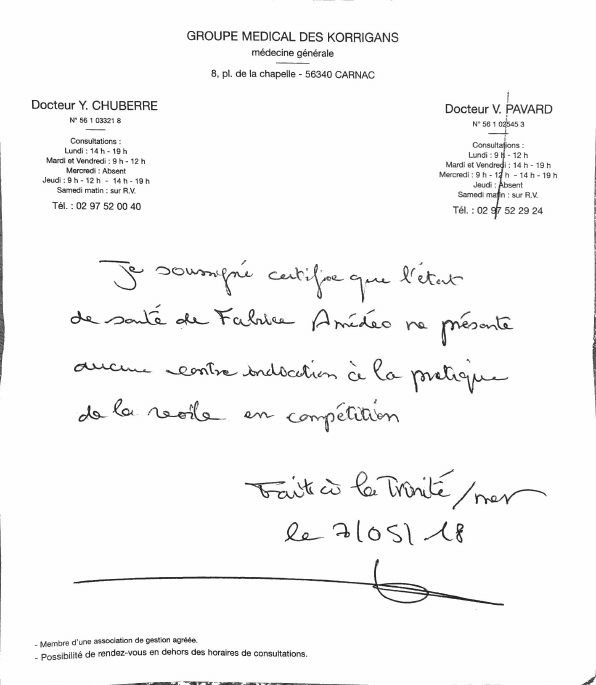 GROUPE MEDICAL DES KORRIGANS
médecine générale
8, pl. de la chapelle - 56340 CARNAC
Docteur Y. CHUBERRE
N° 56 1 03321 8
Consultations :
Lundi : 14 h - 19 h
Mardi et Vendredi : 9 h - 12 h
Mercredi : Absent
Jeudi : 9 h - 12 h - 14 h - 19 h
Samedi matin : sur R.V.
Tél. : 02 97 52 00 40
Docteur V. PAVARD
N° 56 1 02545 3
Consultations :
Lundi : 9 h - 12 h
Mardi et Vendredi : 14 h - 19 h
Mercredi : 9 h - 12 h - 14 h - 19 h
Jeudi : Absent
Samedi matin : sur R.V.
Tél. : 02 97 52 29 24
Je soussigné certifie que l'état
de santé de Fabrice Amédéo ne présente
aucune contre indication à la pratique
de la voile en compétition
Fait à la Trinité / mer
le 7/05/18
- Membre d'une association de gestion agréée.
- Possibilité de rendez-vous en dehors des horaires de consultations.